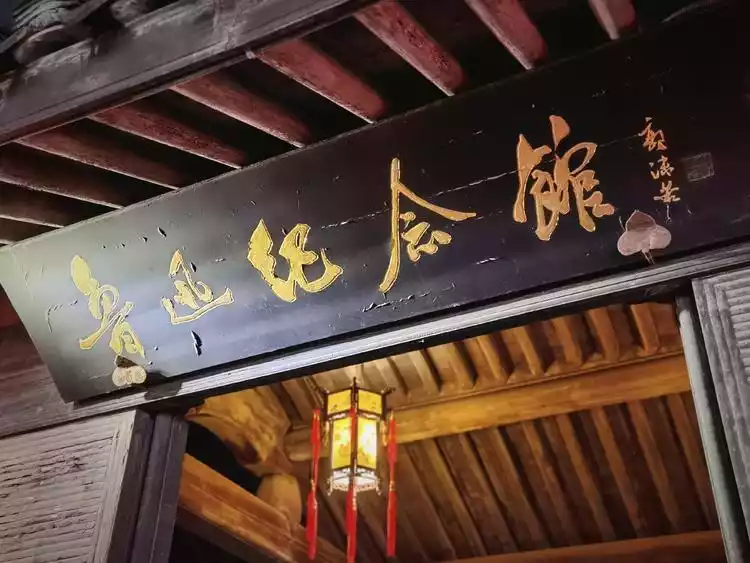 鲁迅纪念館
郭沫若